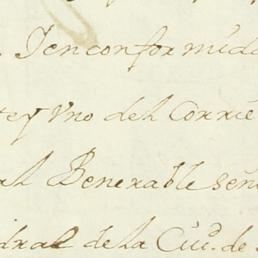 Jen conformida
tey Vno del Corrie
al Benerable señ
dral de la Ciud. de